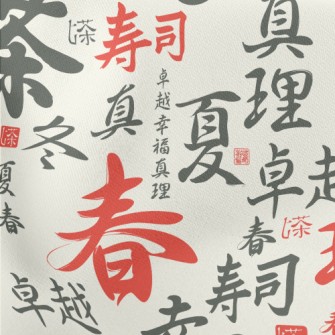 茶
茶
寿司
真理
真
卓越幸福真理
夏
冬
茶
夏春
春
卓
越
春
茶
卓越
寿司
幸
茶